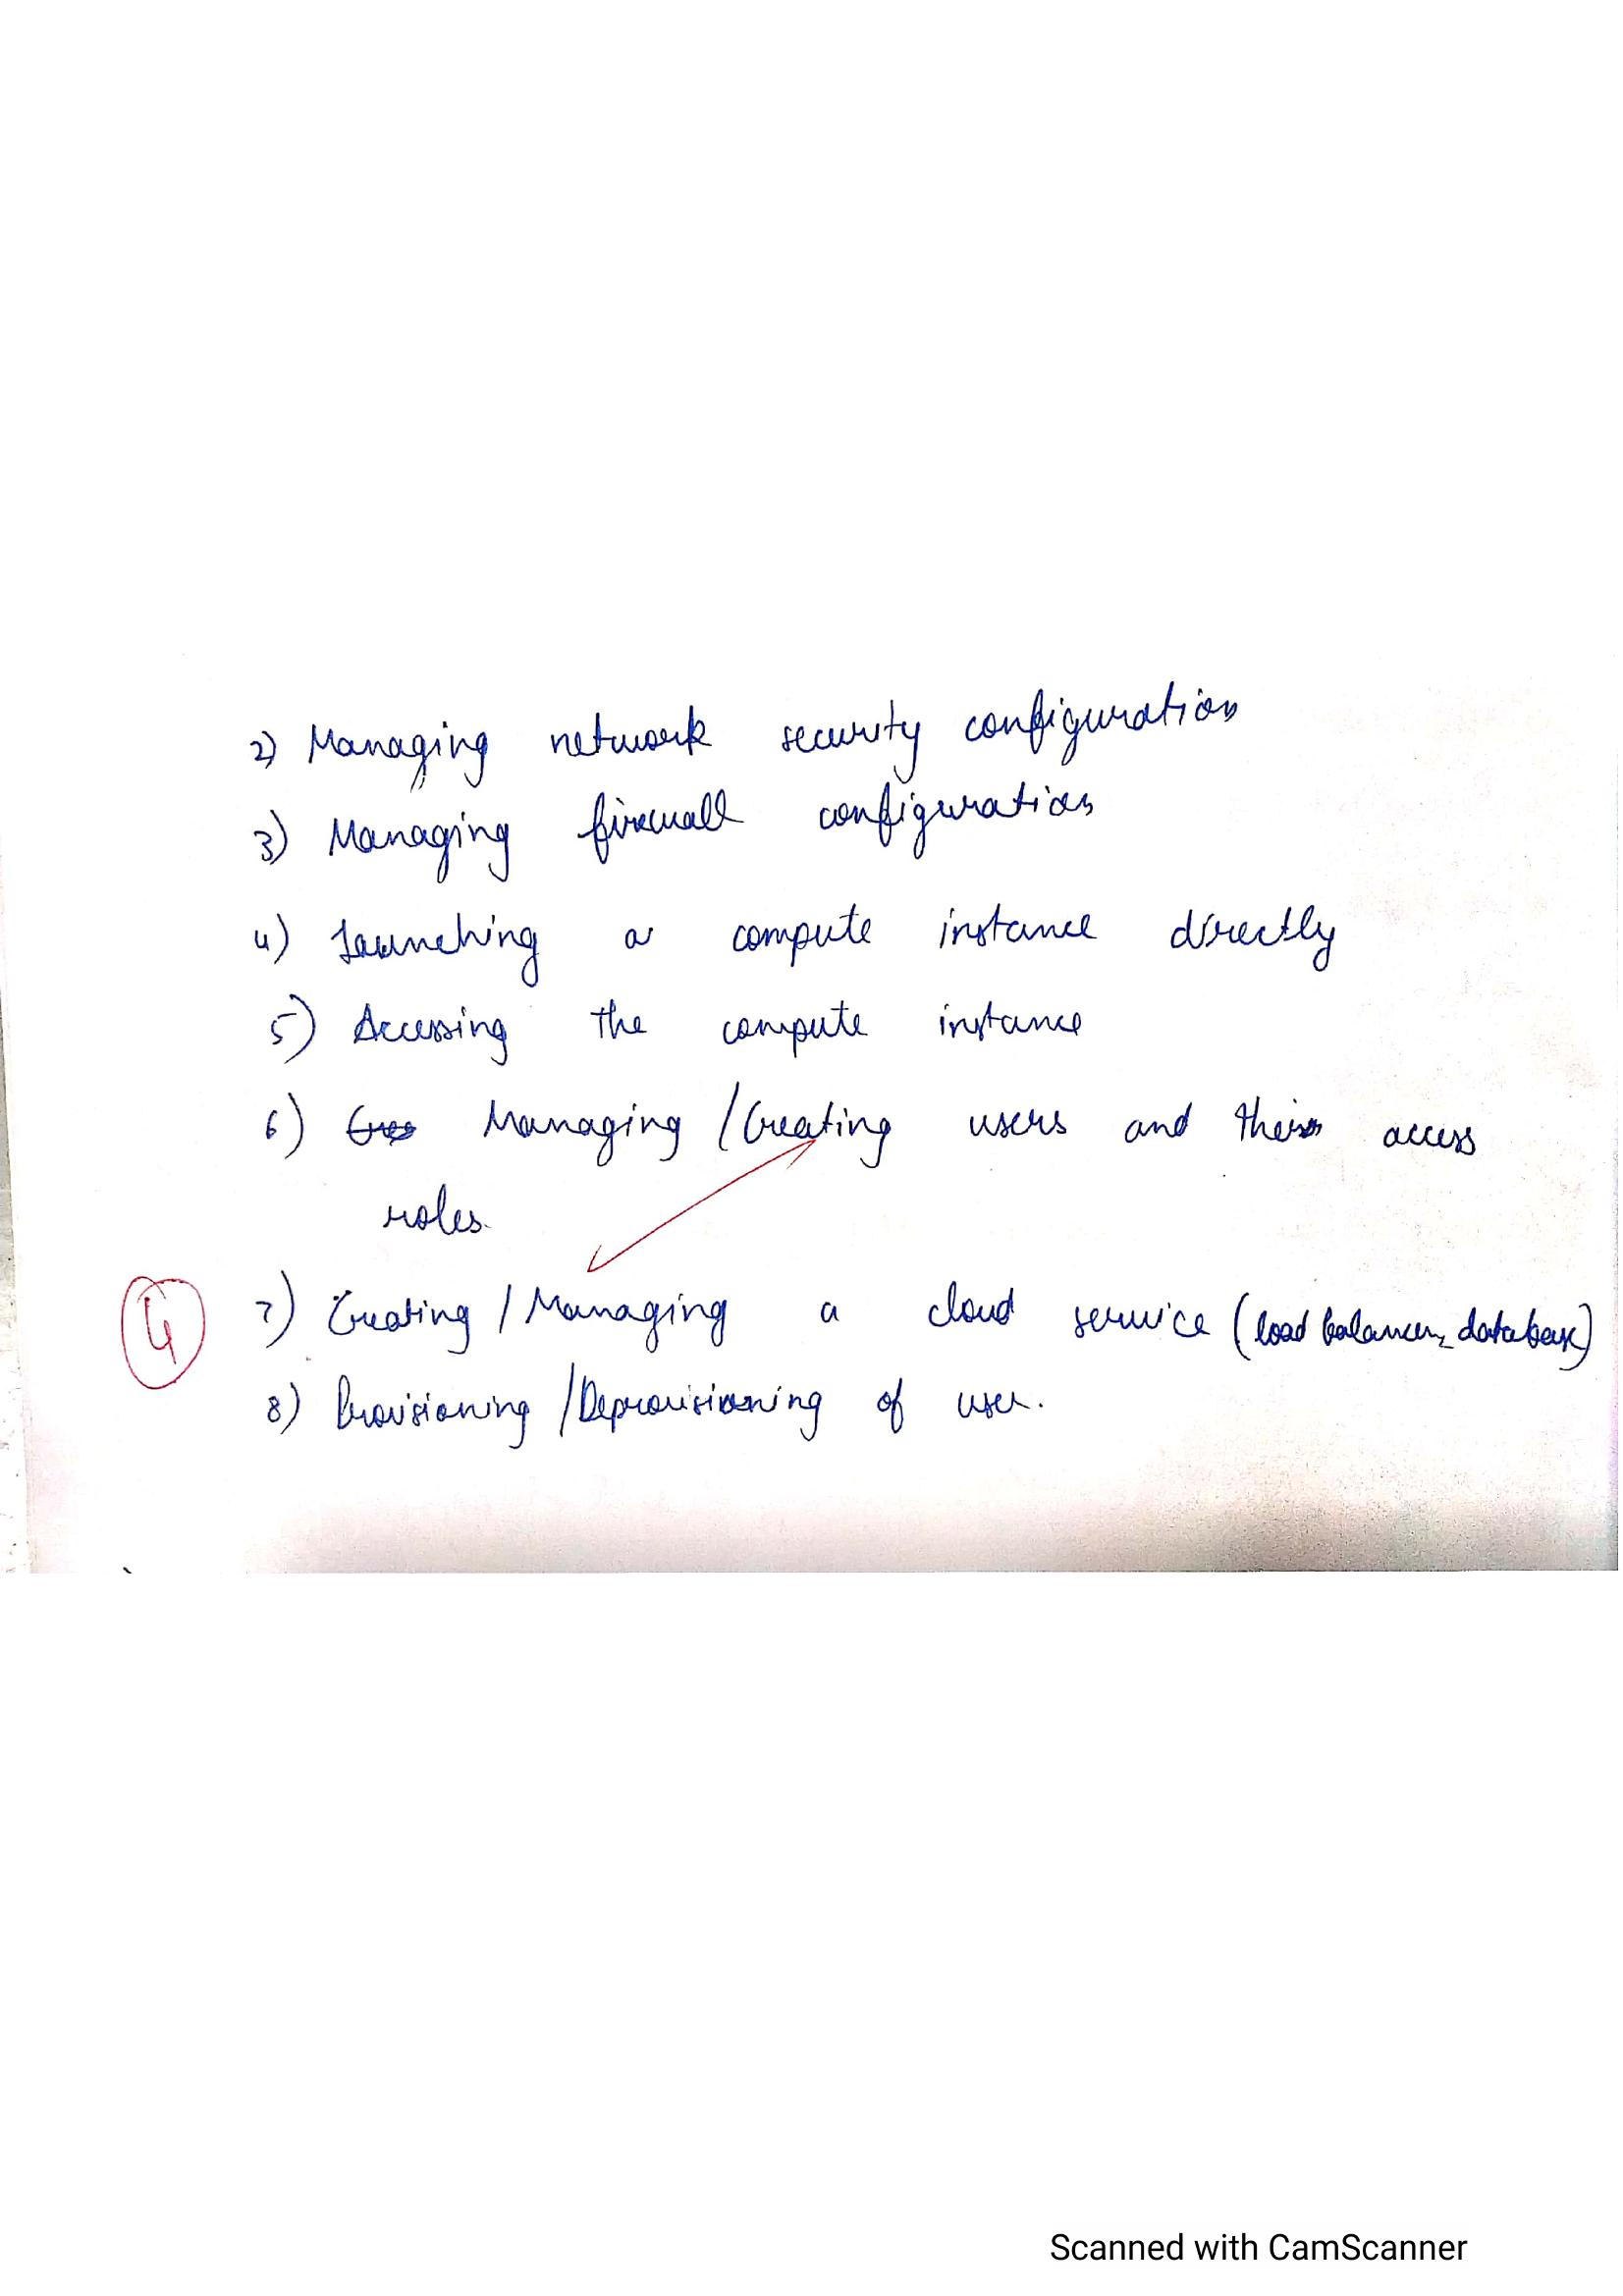 2) Managing network security configuration
3) Managing firewall configuration
4) Launching a compute instance directly
5) Accessing the compute instance
6) Managing / Creating users and their access
roles.
4
7) Creating / Managing a cloud service (load balancer, database)
8) Provisioning / Deprovisioning of user.
Scanned with CamScanner